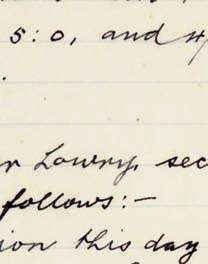 5:0, and
.
Lowry, sec
follows:-
ion this day